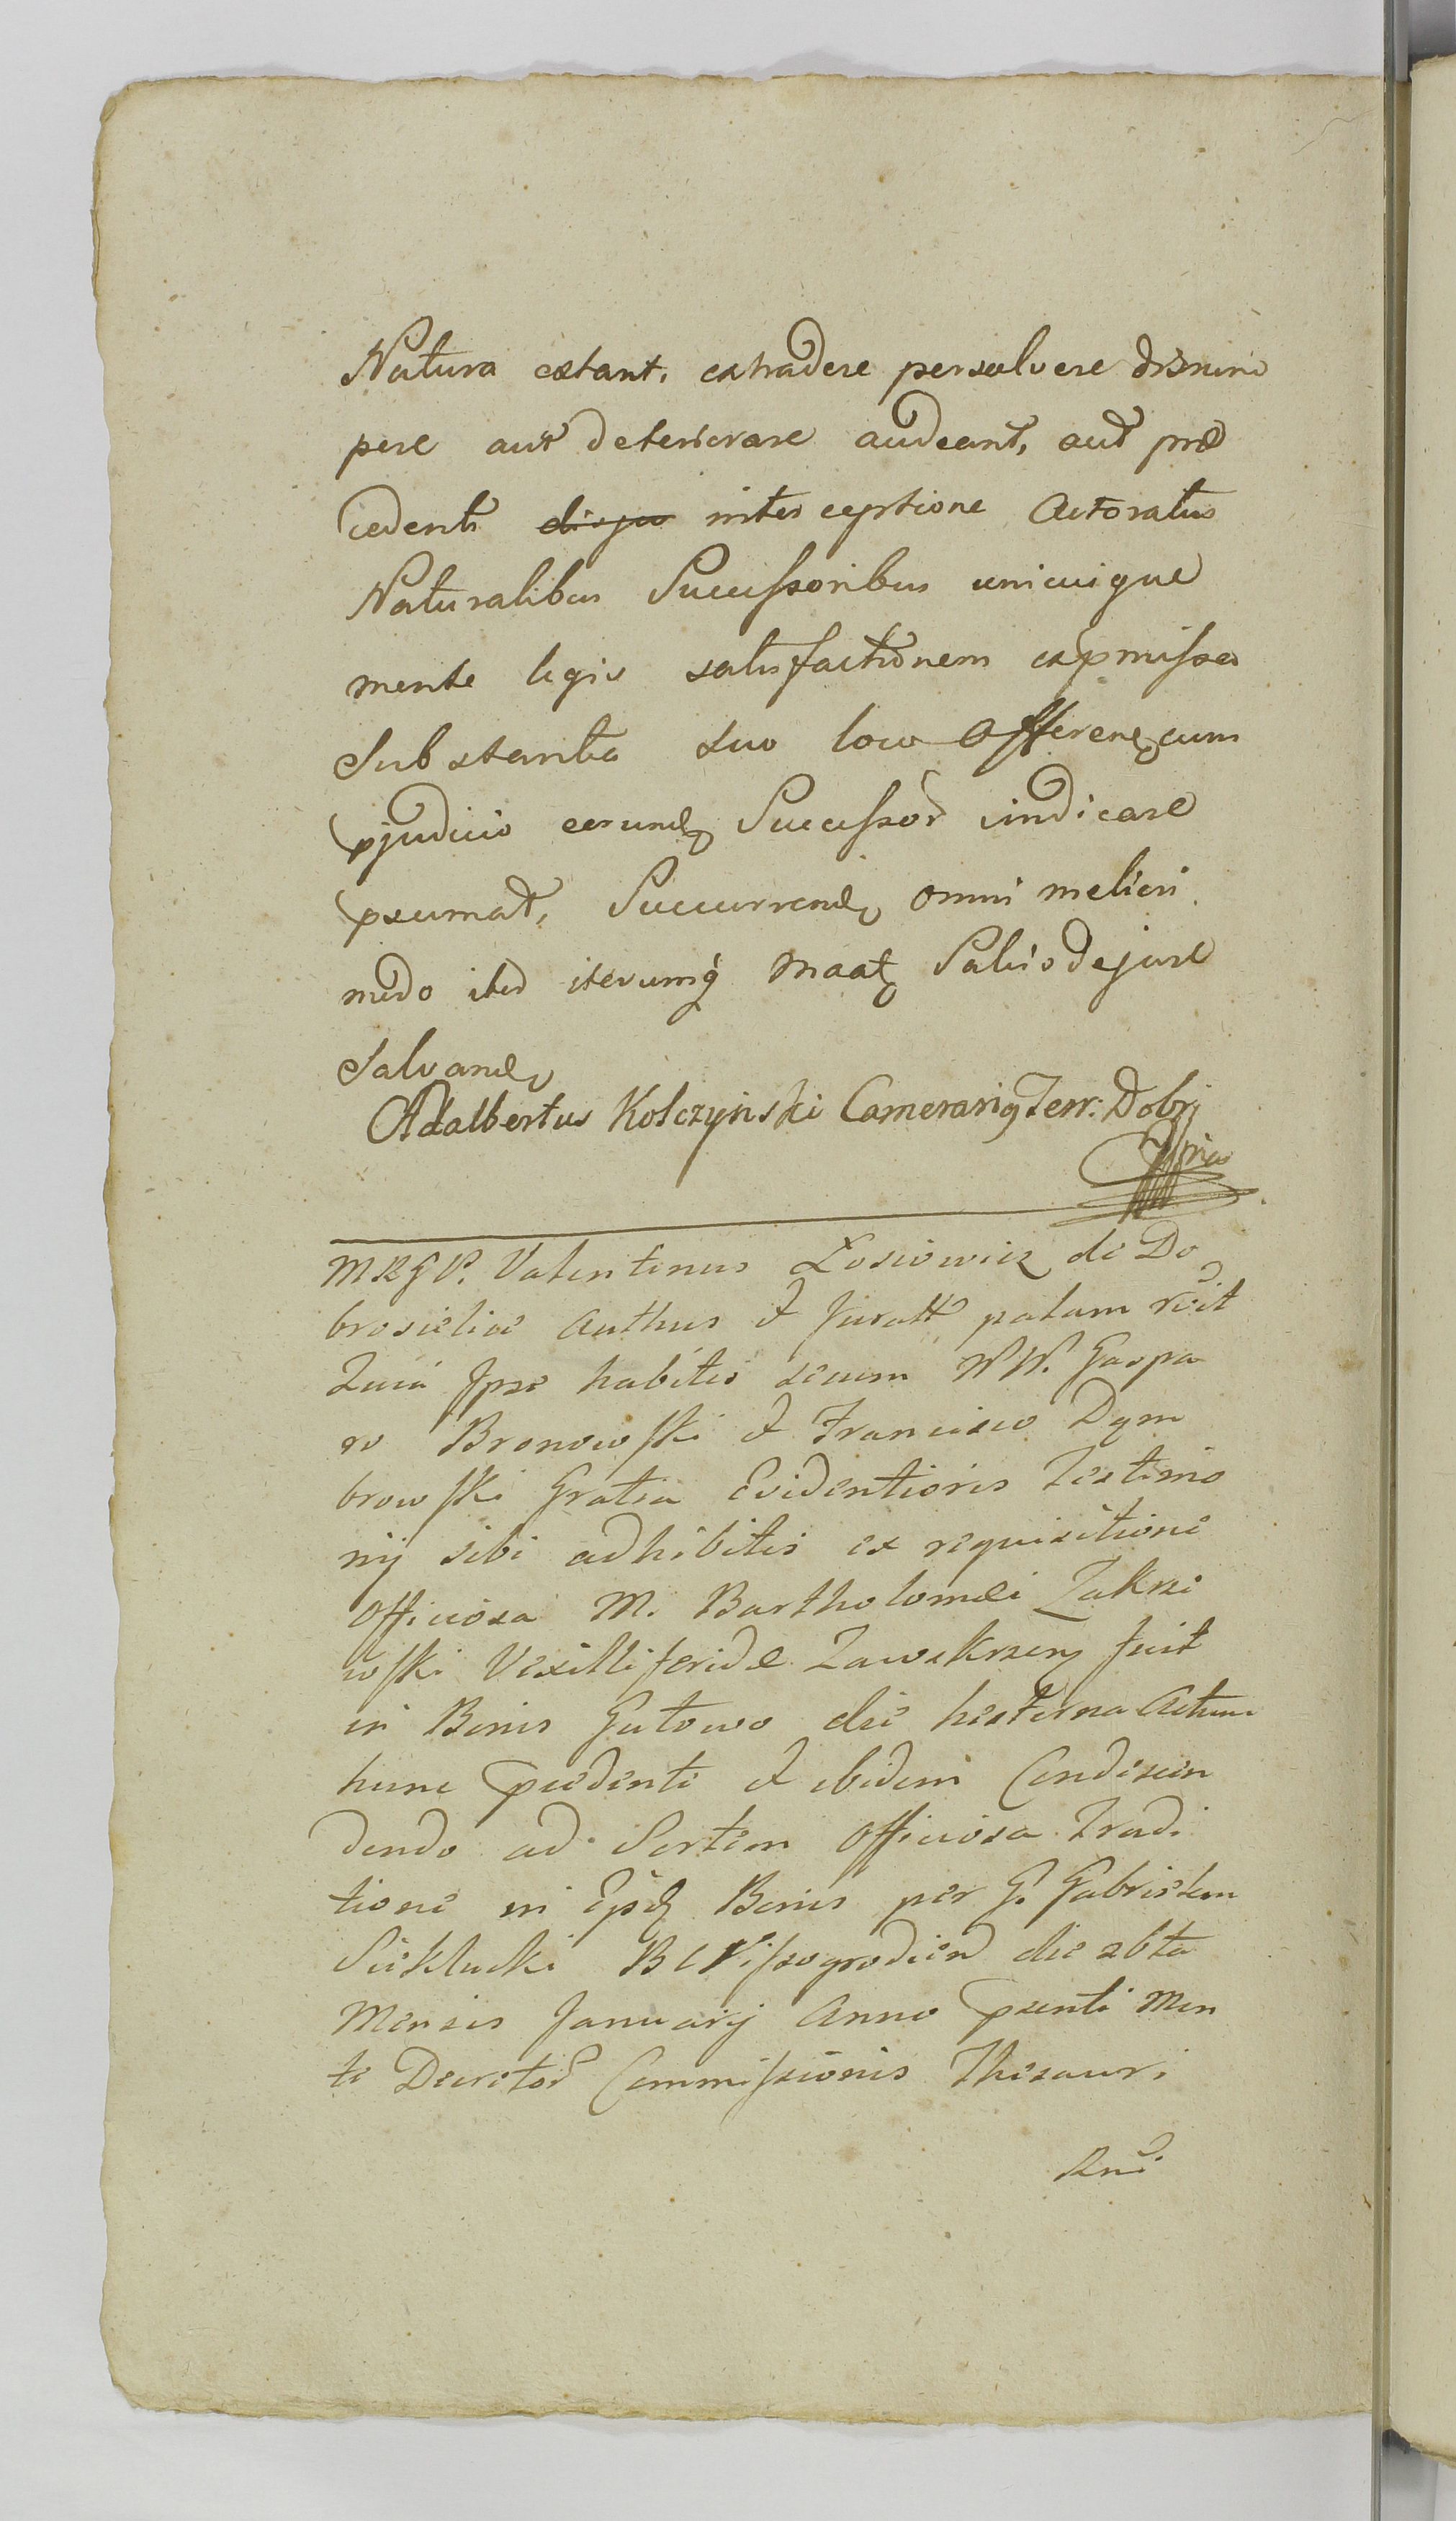 Natura extant, extradere persolvere disrum
pere aut deteriorare audeant, aut præ
cedenti interceptione Actoratus
Naturalibus Successoribus unicuique
mente legis satisfactionem expmissa
Substantia suo loco Offerend cum
pjudicio eorund Successor vindicare
psumat, Succurrend omni meliori
modo ited iterumq́ Maat Salvis de jure
Salvand
Adalbertus Kolczyński Camerarig Terr: Dobri
mpria
MRGP. Valentinus Łosiowicz de Do
brosielice Authus et Juratt palam rcit
Quia Ipse habitis secum NN. Gaspa
ro Bronowski et Francisco Dym
browski Gratia Evidentioris Testimo
nij sibi adhibitis ex requisitione
Officiosa M. Bartholomæi Zakrze
wski Vexilliferidæ Zawskrzen fuit
in Bonis Gutowo die hesterna Actum
hunc pcedenti et ibidem Condescen
dendo ad Sortem Officiosa Tradi
tione in Bonis per G. Gabrielem
Sieklucki BC Vissogrodien die
Mensis Januarij Anno psenti Men
te Decretor Commissionis Thesauri
Rni